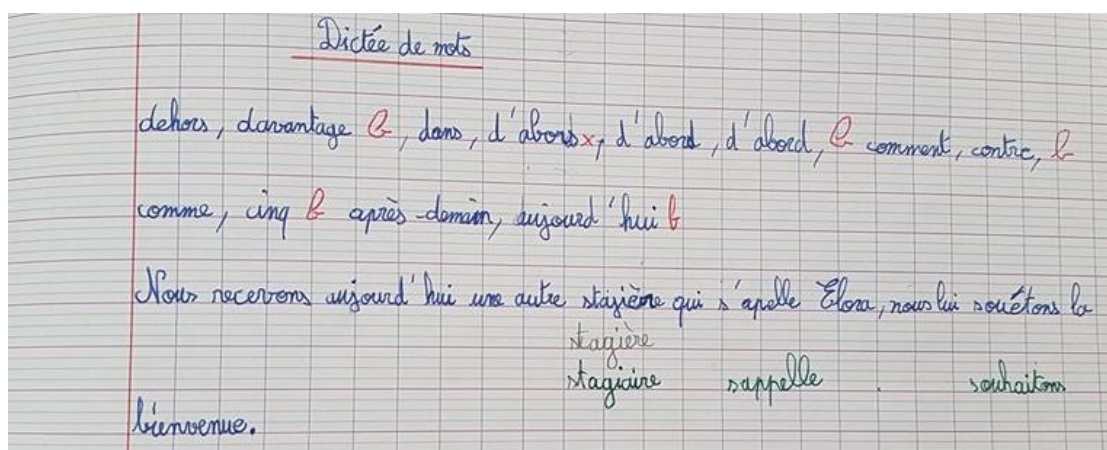 Dictée de mots
dehors, davantage B, dans, d'abors x, d'abord, d'abord, B comment, contre, B
comme, cinq B après-demain, aujourd'hui B
Nous recevons aujourd'hui une autre stagière qui s'apelle Elora, nous lui souétons la
stagière
stagiaire sappelle . souhaitons
bienvenue.